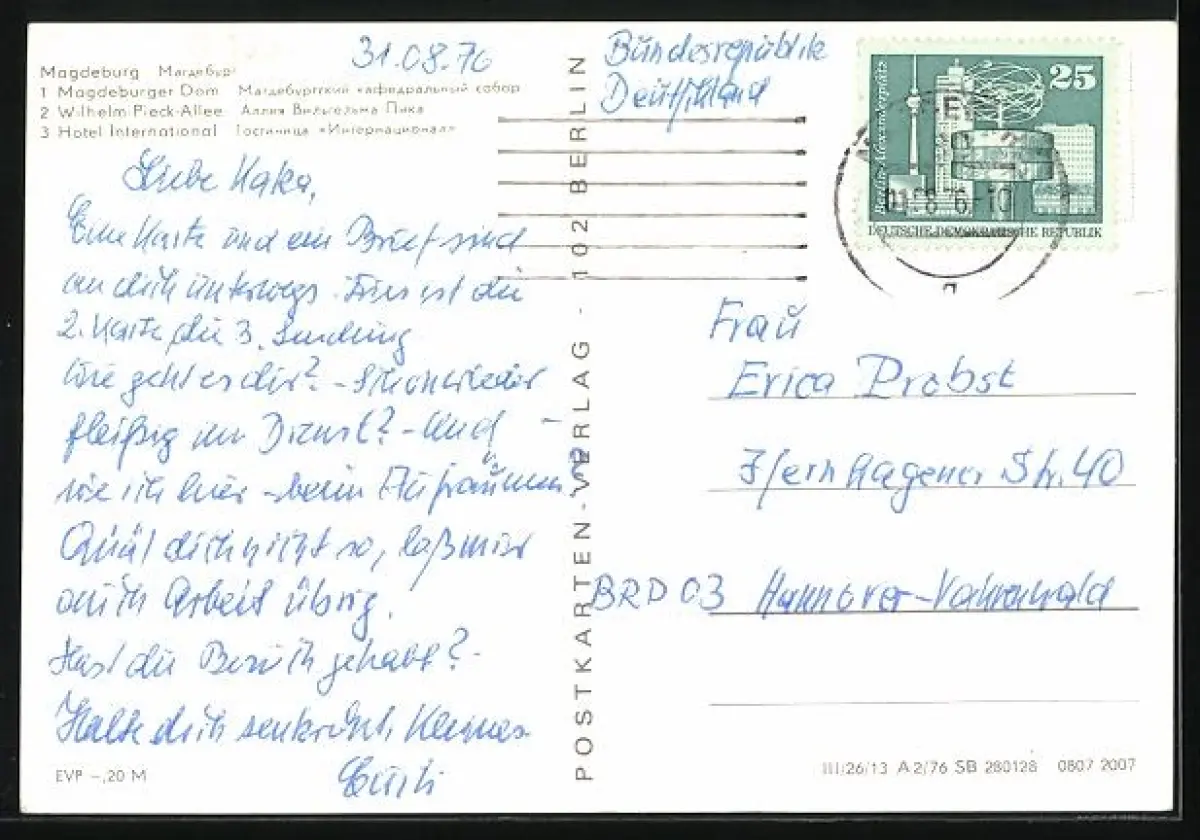 Magdeburg Магдебург
1 Magdeburger Dom Магдебургский кафедральный собор
2 Wilhelm-Pieck-Allee Аллия Вильгельма Пика
3 Hotel International Гостиница «Интернационал»
31.08.76
Liebe Kaka,
Eine Karte und ein Brief sind
an dich unterwegs. Dies ist die
2. Karte, die 3. Sendung
Wie geht es dir? - Schon wieder
fleißig im Dienst? - Und
wie ich hier - beim Aufräumen
Quäl dich nicht so, laß mir
auch Arbeit übrig.
Hast du Besuch gehabt? -
Halte dich senkrecht, Kleines.
EVP -,20 M
POSTKARTEN-VERLAG · 102 BERLIN
Bundesrepublik
Deutschland
25
Berlin-Alexanderplatz
DEUTSCHE DEMOKRATISCHE REPUBLIK
Frau
Erica Probst
Isernhagener Str. 40
BRD 03 Hannover-Vahrenwald
III/26/13 A 2/76 SB 280128 0807 2007